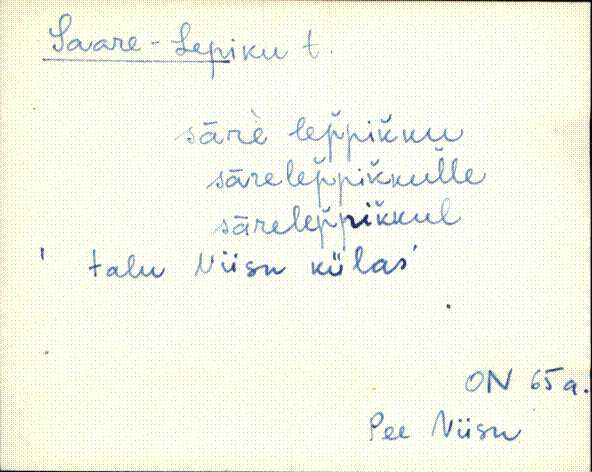 Saare-Lepiku t.
sārè̬ lep̆pik̆ku
sārelep̆pik̆kul̆le
sārelep̆pik̆kul
' talu Niisu külas'
ON 65a.
Pee Niisu